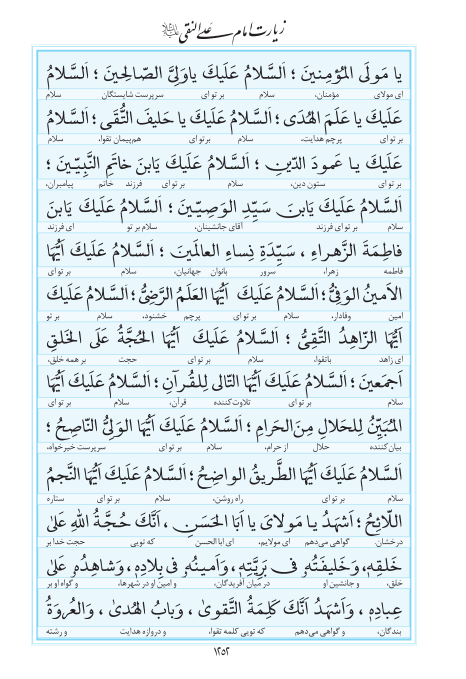 زیارت امام علی النقی علیه السلام
یا مَولَی المُؤمِنینَ ؛ اَلسَّلامُ عَلَیكَ یاوَلِیَّ الصّالِحینَ ؛ اَلسَّلامُ
ای مولای مؤمنان، سلام بر تو ای سرپرست شایستگان سلام
عَلَیكَ یا عَلَمَ الهُدَی ؛ اَلسَّلامُ عَلَیكَ یا حَلیفَ التُّقَی ؛ اَلسَّلامُ
بر تو ای پرچم هدایت، سلام بر تو ای هم‌پیمان تقوا، سلام
عَلَیكَ یا عَمودَ الدّینِ ؛ اَلسَّلامُ عَلَیكَ یَابنَ خاتَمِ النَّبِیّینَ ؛
بر تو ای ستون دین، سلام بر تو ای فرزند خاتم پیامبران،
اَلسَّلامُ عَلَیكَ یَابنَ سَیِّدِ الوَصِیّینَ ؛ اَلسَّلامُ عَلَیكَ یَابنَ
سلام بر تو ای فرزند آقای جانشینان، سلام بر تو ای فرزند
فاطِمَةَ الزَّهراءِ ، سَیِّدَةِ نِساءِ العالَمینَ ؛ اَلسَّلامُ عَلَیكَ اَیُّهَا
فاطمه زهرا، سرور بانوان جهانیان، سلام بر تو ای
الاَمینُ الوَفِیُّ ؛ اَلسَّلامُ عَلَیكَ اَیُّهَا العَلَمُ الرَّضِیُّ ؛ اَلسَّلامُ عَلَیكَ
امین وفادار، سلام بر تو ای پرچم خشنود، سلام بر تو
اَیُّهَا الزّاهِدُ التَّقِیُّ ؛ اَلسَّلامُ عَلَیكَ اَیُّهَا الحُجَّةُ عَلَی الخَلقِ
ای زاهد باتقوا، سلام بر تو ای حجت بر همه خلق،
اَجمَعینَ ؛ اَلسَّلامُ عَلَیكَ اَیُّهَا التّالی لِلقُرآنِ ؛ اَلسَّلامُ عَلَیكَ اَیُّهَا
سلام بر تو ای تلاوت‌کننده قرآن، سلام بر تو ای
المُبَیِّنُ لِلحَلالِ مِنَ الحَرامِ ؛ اَلسَّلامُ عَلَیكَ اَیُّهَا الوَلِیُّ النّاصِحُ ؛
بیان‌کننده حلال از حرام، سلام بر تو ای سرپرست خیرخواه،
اَلسَّلامُ عَلَیكَ اَیُّهَا الطَّریقُ الواضِحُ ؛ اَلسَّلامُ عَلَیكَ اَیُّهَا النَّجمُ
سلام بر تو ای راه روشن، سلام بر تو ای ستاره
اللّائِحُ ؛ اَشهَدُ یا مَولایَ یا اَبَا الحَسَنِ ، اَنَّكَ حُجَّةُ اللهِ عَلیٰ
درخشان. گواهی می‌دهم ای مولایم، ای ابا الحسن که تویی حجت خدا بر
خَلقِهِ، وَ خَلیفَتُهُ فی بَرِیَّتِهِ ، وَ اَمینُهُ فی بِلادِهِ ، وَ شاهِدُهُ عَلیٰ
خلق، و جانشین او در میان آفریدگان، و امین او در شهرها، و گواه او بر
عِبادِهِ ، وَ اَشهَدُ اَنَّكَ كَلِمَةُ التَّقویٰ ، وَ بابُ الهُدیٰ ، وَ العُروَةُ
بندگان، و گواهی می‌دهم که تویی کلمه تقوا، و دروازه هدایت و رشته
۱۲۵۲